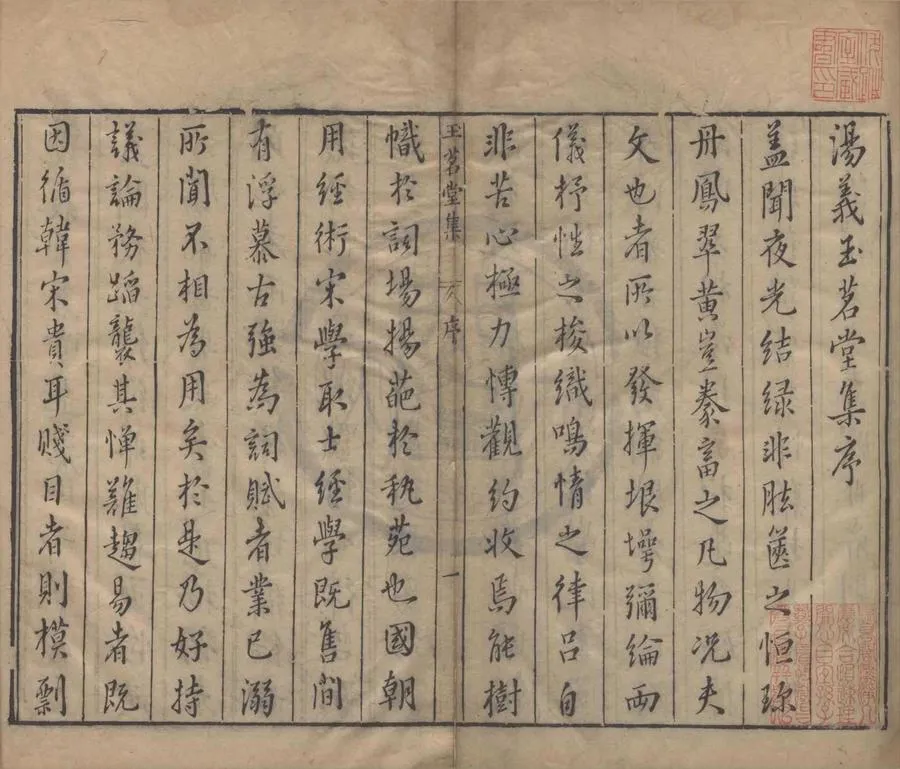 湯義玉茗堂集序
蓋聞夜光結绿非胠篋之恒珎
丹鳳翠黄豈豢畜之凡物况夫
文也者所以發揮垠堮彌綸兩
儀抒性之梭織鳴情之律吕自
非苦心極力慱觀約收焉能樹
玉茗堂集
序
一
幟於詞場揚葩於秇苑也國朝
用經術宋學取士經學既售間
有浮慕古強為詞賦者業已溺
所聞不相為用矣於是乃好持
議論務蹈襲其憚難趨易者既
因循韓宋貴耳賤目者則模剽